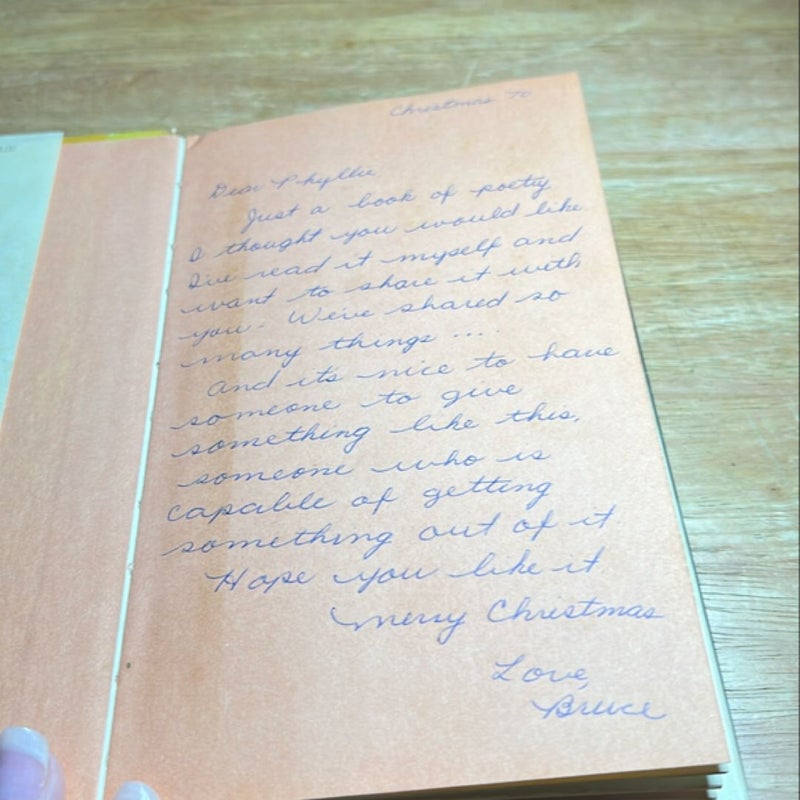 Christmas '70
Dear Phyllis,
Just a book of poetry
I thought you would like.
I've read it myself and
want to share it with
you. We've shared so
many things ....
And it's nice to have
someone to give
something like this,
someone who is
capable of getting
something out of it
Hope you like it
Merry Christmas
Love,
Bruce